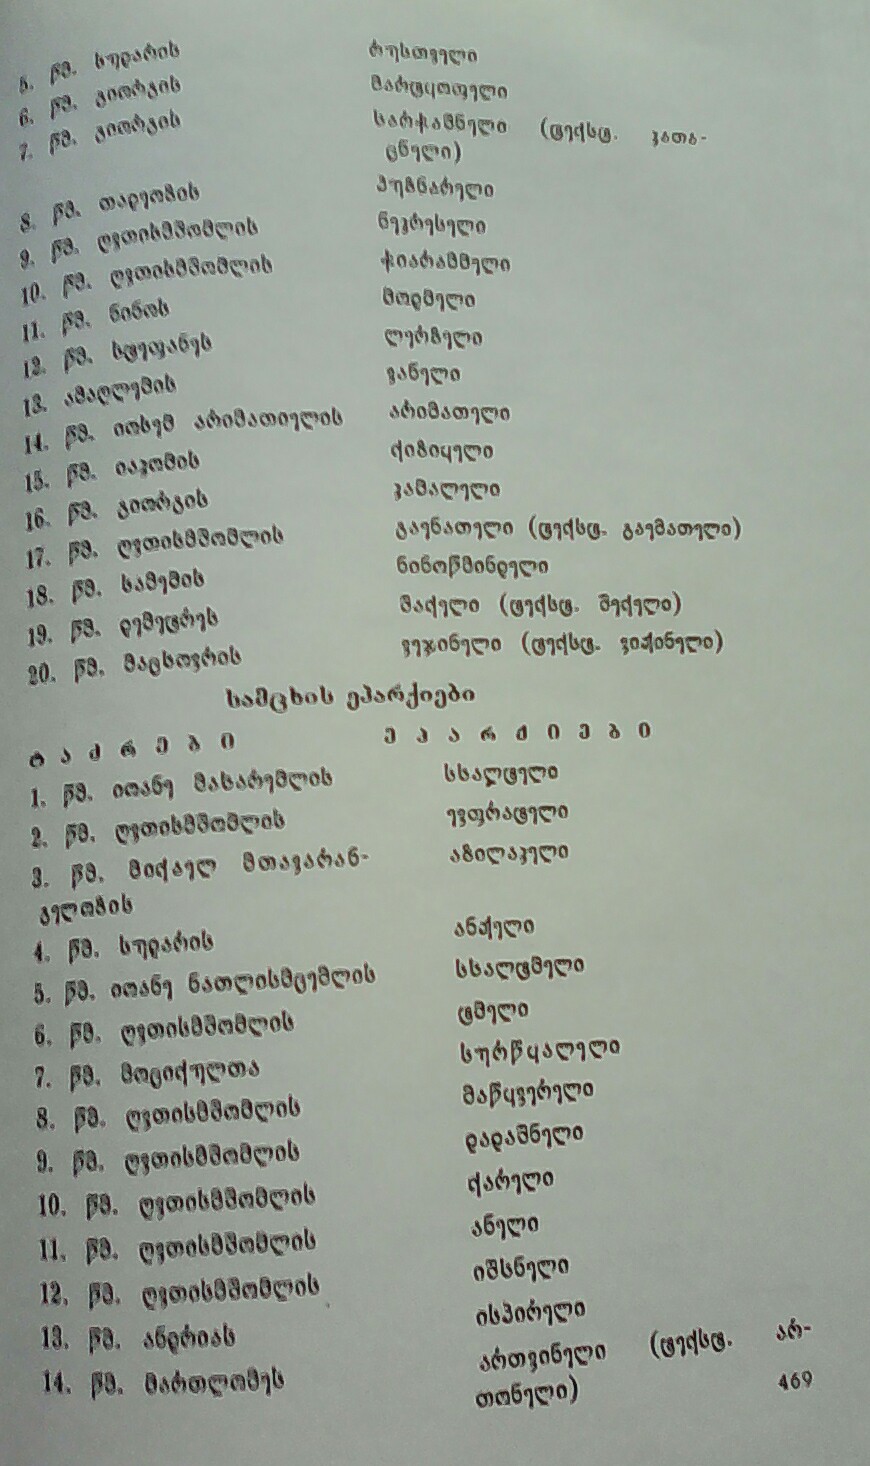 5. წმ. სუდარის რუსთველი
6. წმ. გიორგის მარტყოფელი
7. წმ. გიორგის სარჯამნელი (ტექსტ. ჯათა-
ცნელი)
8. წმ. თადეოზის
9. წმ. ღვთისმშობლის ნეკრესელი
10. წმ. ღვთისმშობლის
11. წმ. ნინოს ბოდბელი
12. წმ. სტეფანეს
13. ამაღლების ვანელი
14. წმ. იოსებ არიმათიელის არიმათელი
15. წმ. იაკობის ქიზიყელი
16. წმ. გიორგის კამალელი
17. წმ. ღვთისმშობლის გაენათელი (ტექსტ. გაემათელი)
18. წმ. სამების ნინოწმინდელი
19. წმ. დემეტრეს მაქელი (ტექსტ. შექელი)
20. წმ. მაცხოვრის ვეჯინელი (ტექსტ. ვიჟინელი)
სამცხის ეპარქიები
ტაძრები ეპარქიები
1. წმ. იოანე მახარებლის სხალტელი
2. წმ. ღვთისმშობლის ევფრატელი
3. წმ. მიქაელ მთავარან- აზილაკელი
გელოზის
4. წმ. სუდარის ანჭელი
5. წმ. იოანე ნათლისმცემლის სხალტბელი
6. წმ. ღვთისმშობლის ტბელი
7. წმ. მოციქულთა სურწყალელი
8. წმ. ღვთისმშობლის მაწყვერელი
9. წმ. ღვთისმშობლის დადაშნელი
10. წმ. ღვთისმშობლის ქარელი
11. წმ. ღვთისმშობლის ანელი
12. წმ. ღვთისმშობლის იშხნელი
13. წმ. ანდრიას ისპირელი
14. წმ. ბართლომეს ართვინელი (ტექსტ. არ-
თონელი)
469